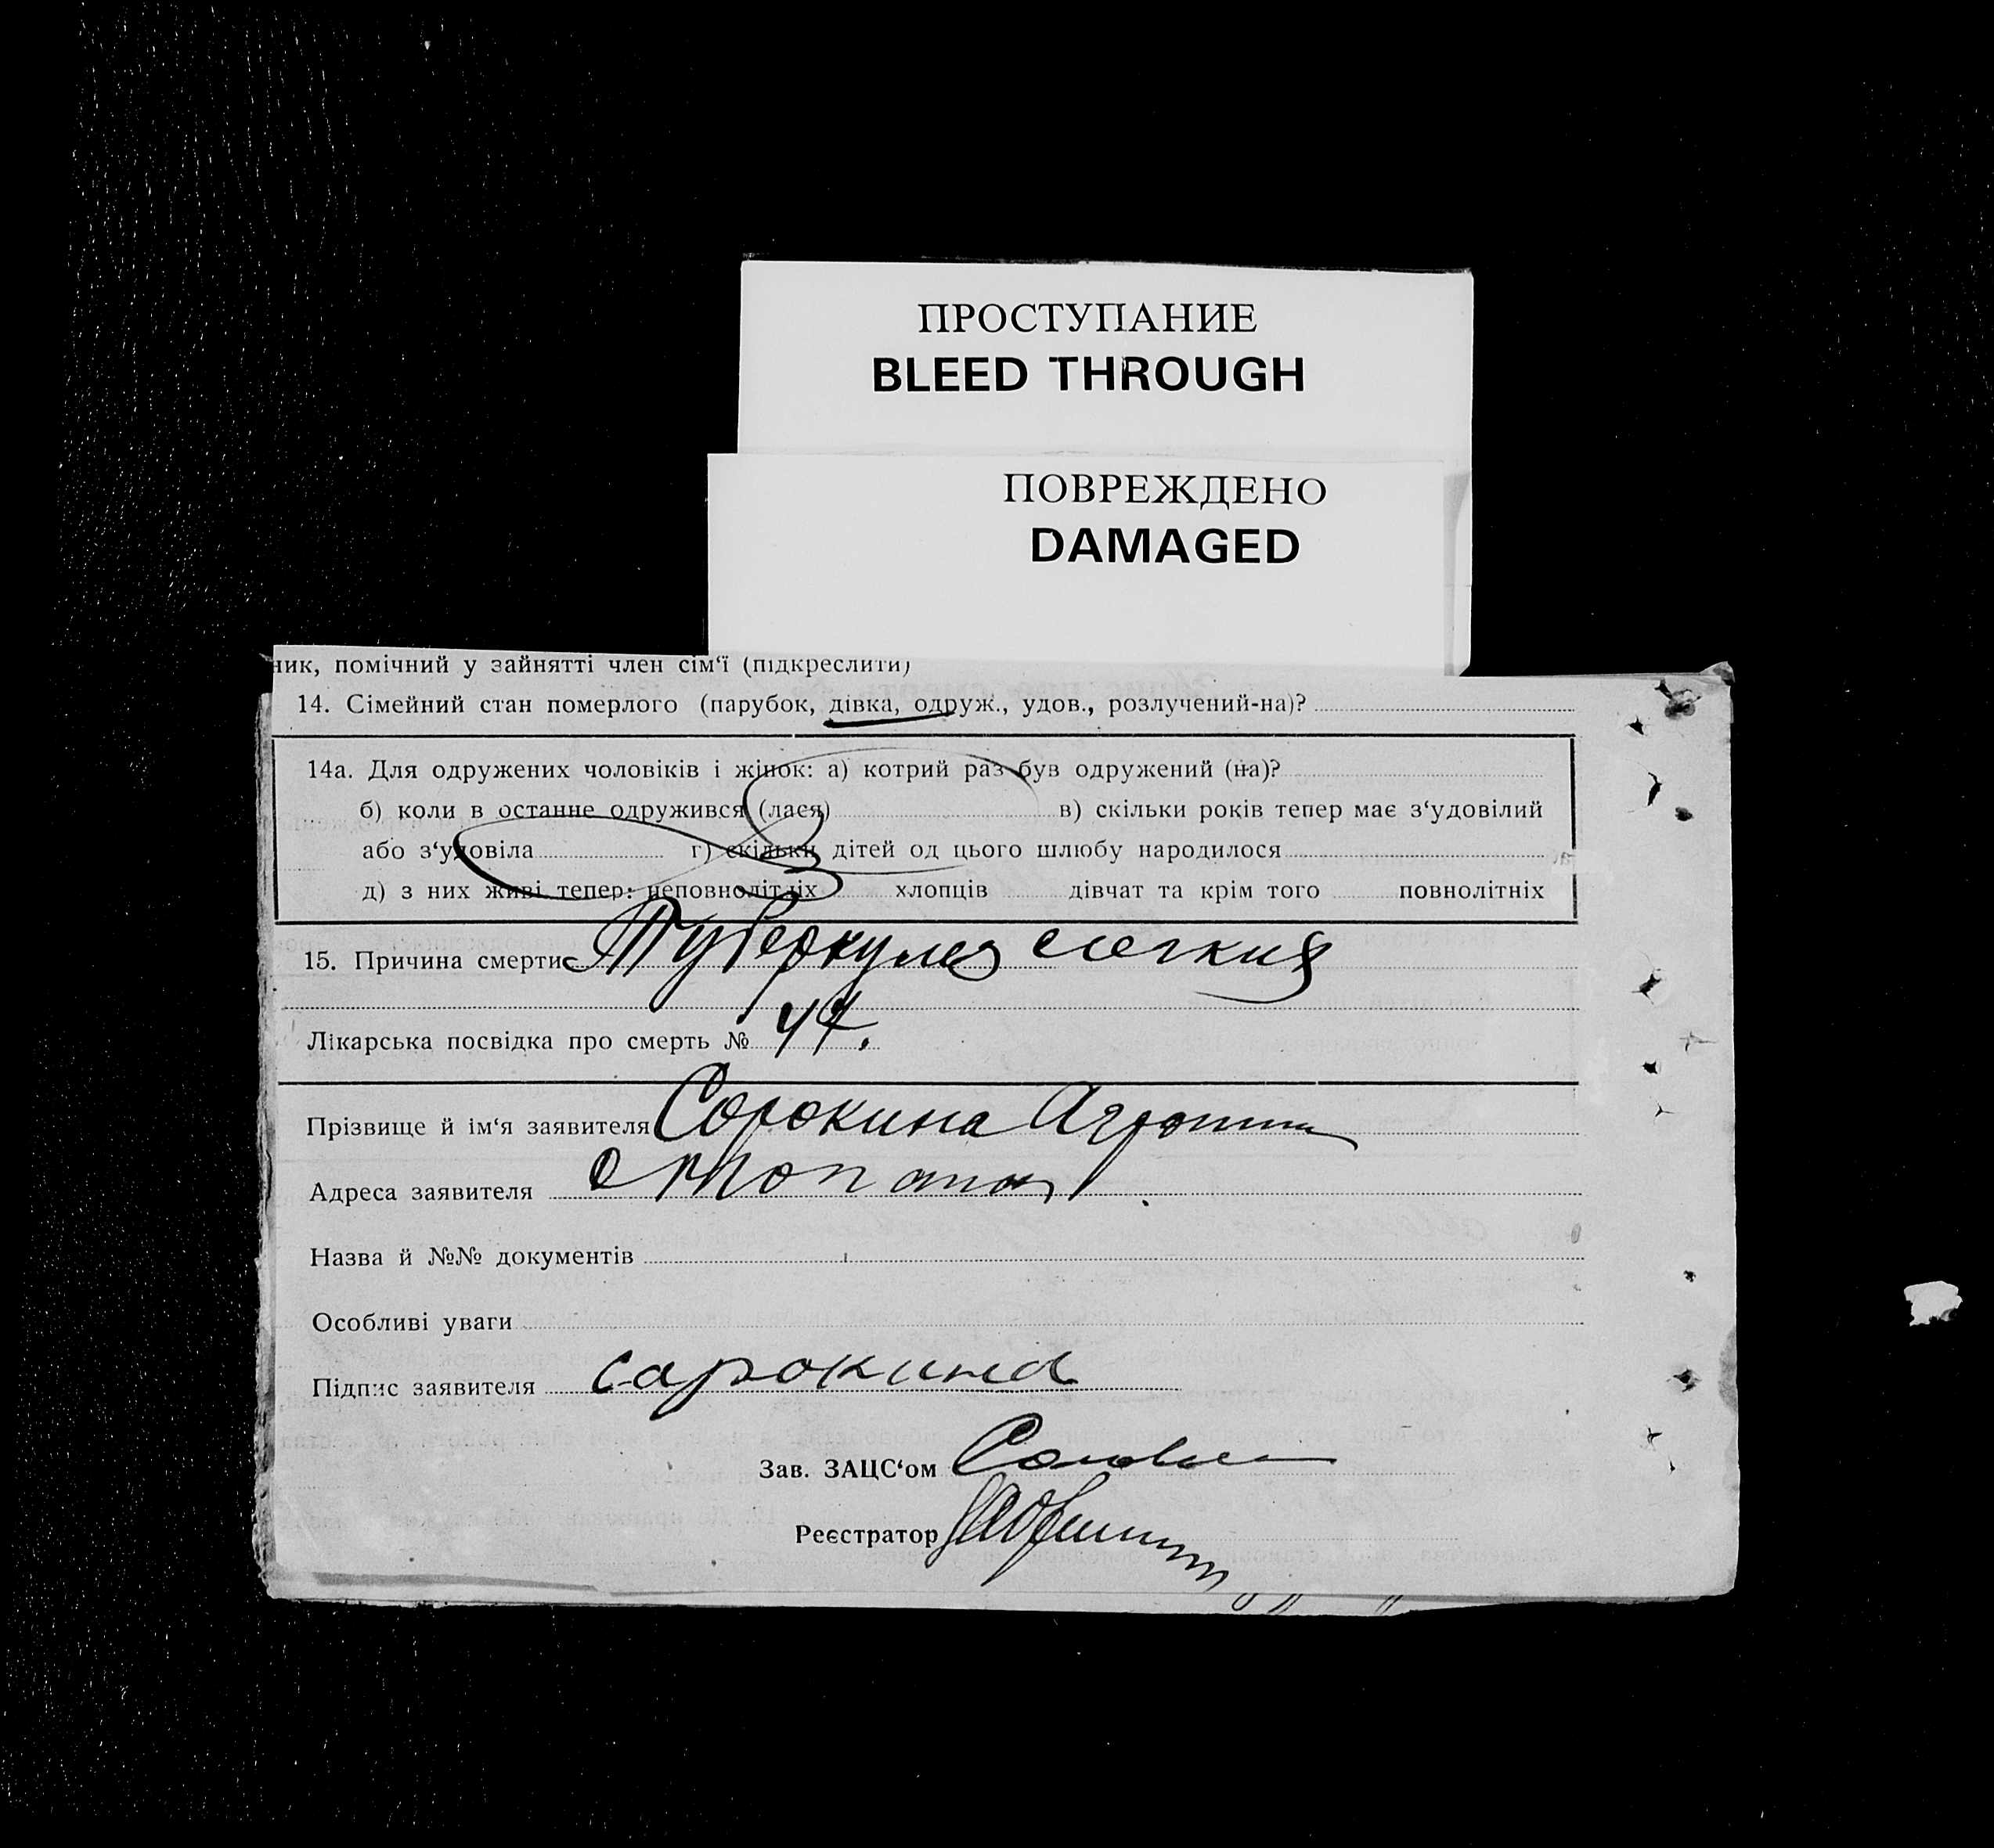 ПРОСТУПАНИЕ
BLEED THROUGH
ПОВРЕЖДЕНО
DAMAGED
ник, помічний у зайнятті член сім‘ї (підкреслити)
14. Сімейний стан померлого (парубок, дівка, одруж., удов., розлучений-на)?
14а. Для одружених чоловіків і жінок: а) котрий раз був одружений (на)?
б) коли в останнє одружився (лася) в) скільки років тепер має з‘удовілий
або з‘удовіла г) скільки дітей од цього шлюбу народилося
д) з них живі тепер: неповнолітніх хлопців дівчат та крім того повнолітніх
15. Причина смерти Туберкулез легких
Лікарська посвідка про смерть № 44.
Прізвище й ім‘я заявителя Сорокина
Адреса заявителя
Назва й №№ документів
Особливі уваги
Підпис заявителя сарокина
Зав. ЗАЦС‘ом
Реєстратор